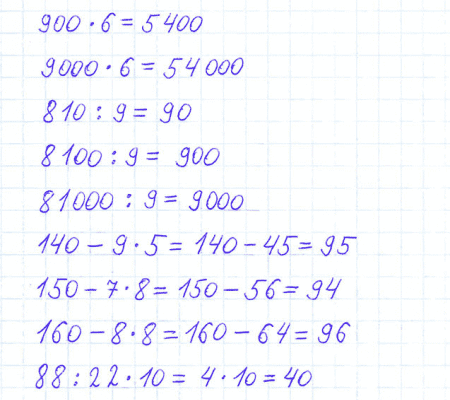 900 · 6 = 5400
9000 · 6 = 54000
810 : 9 = 90
8100 : 9 = 900
81000 : 9 = 9000
140 - 9 · 5 = 140 - 45 = 95
150 - 7 · 8 = 150 - 56 = 94
160 - 8 · 8 = 160 - 64 = 96
88 : 22 · 10 = 4 · 10 = 40